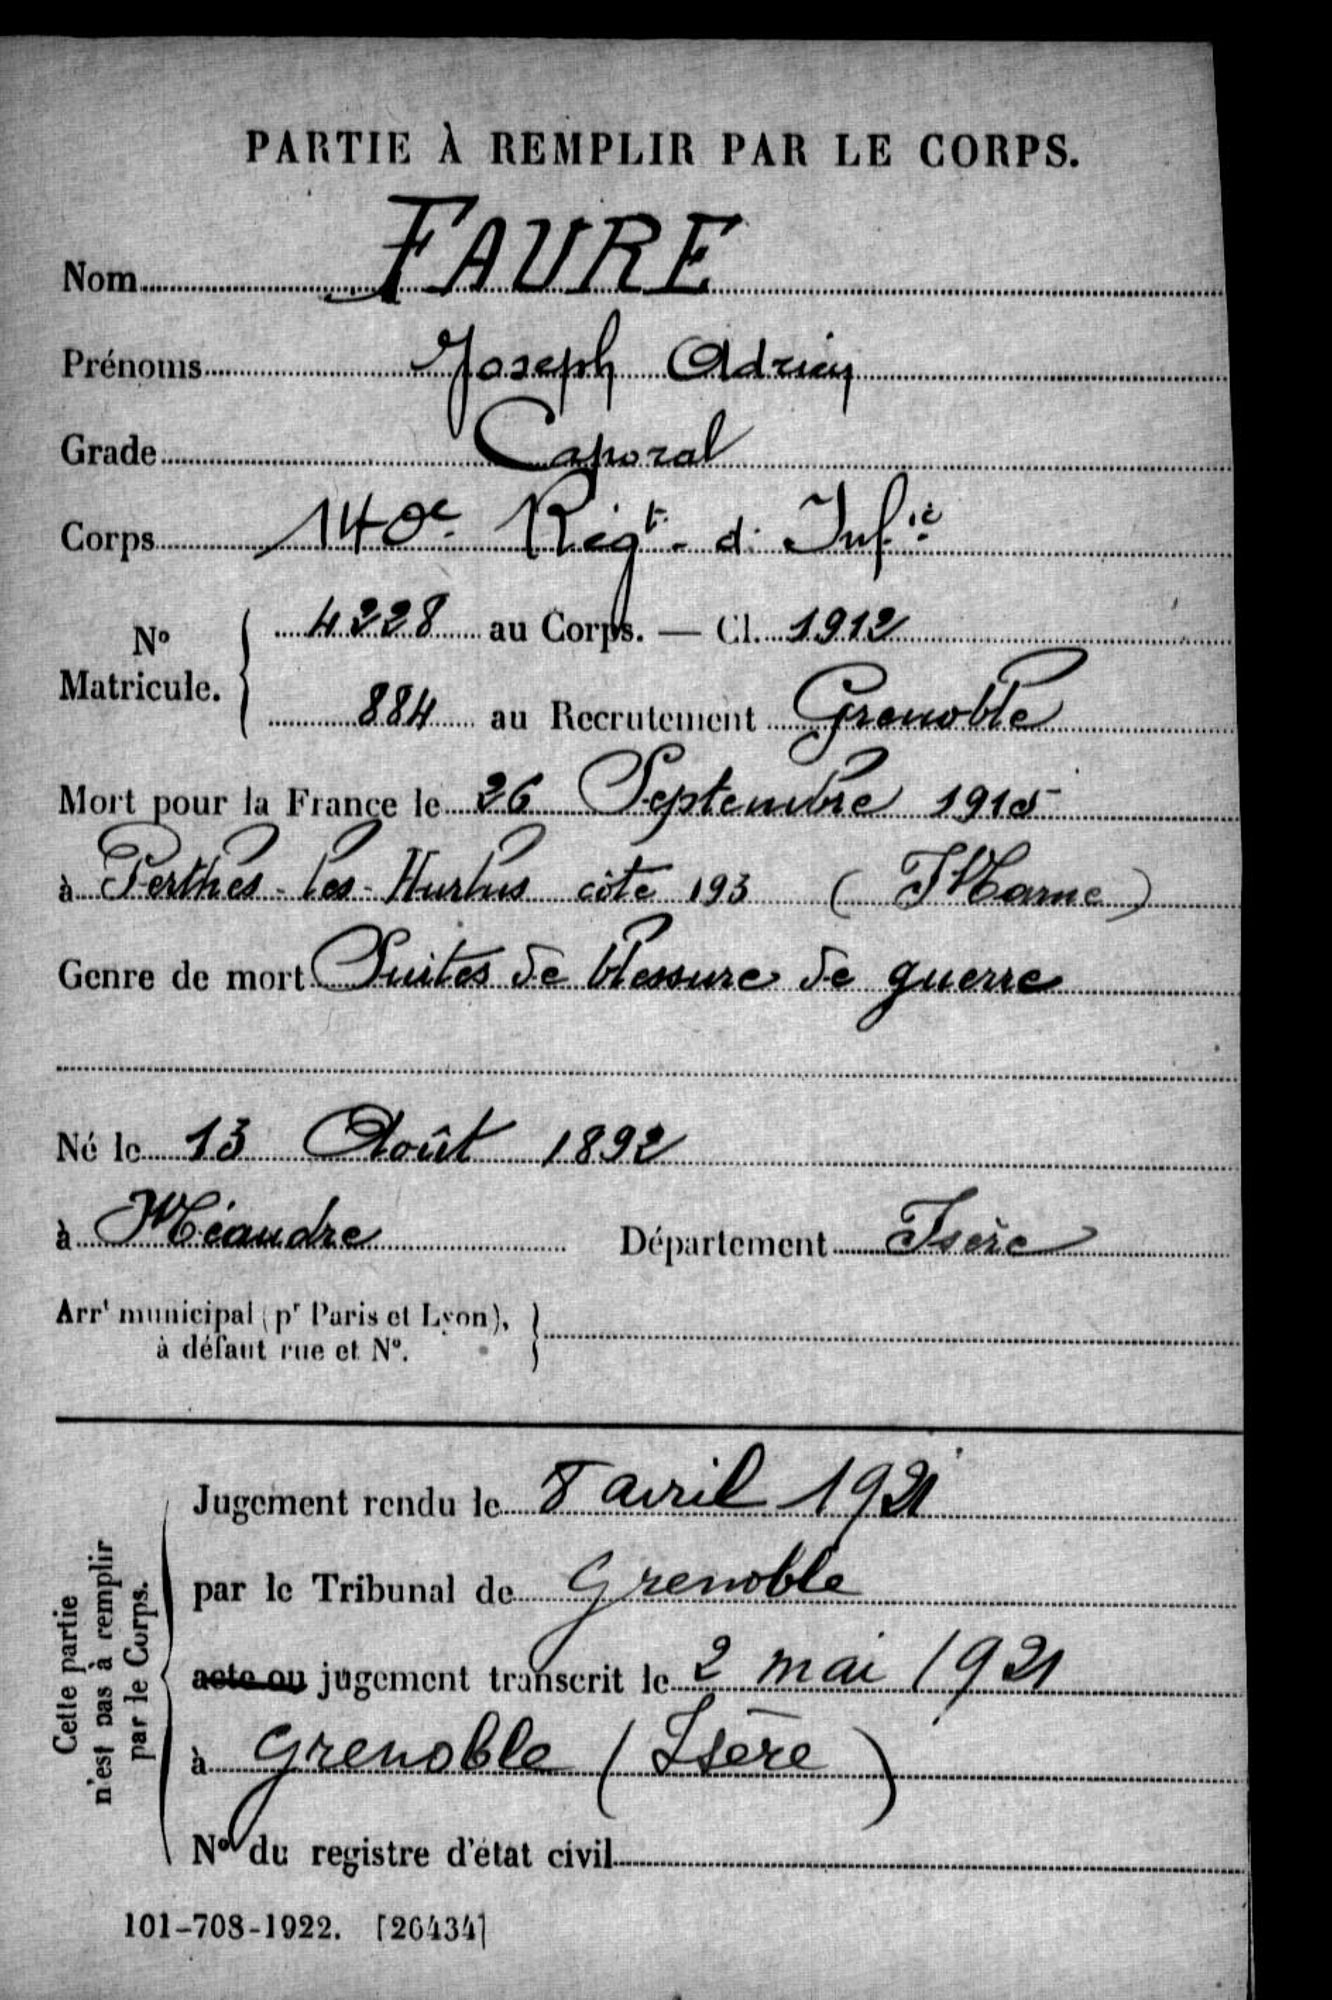 PARTIE À REMPLIR PAR LE CORPS.
Nom FAURE
Prénoms Joseph Adrien
Grade Caporal
Corps 140e Régt. d'Inf.ie
N° Matricule. { 4228 au Corps. — Cl. 1912
884 au Recrutement Grenoble
Mort pour la France le 26 Septembre 1915
à Perthes-les-Hurlus côte 193 (Marne)
Genre de mort Suites de blessure de guerre
Né le 13 Août 1892
à Méaudre Département Isère
Arrt municipal (pr Paris et Lyon),
à défaut rue et N°.
Cette partie
n'est pas à remplir
par le Corps.
Jugement rendu le 8 avril 1921
par le Tribunal de Grenoble
acte ou jugement transcrit le 2 mai 1921
à Grenoble (Isère)
N° du registre d'état civil
101-708-1922. [26434]